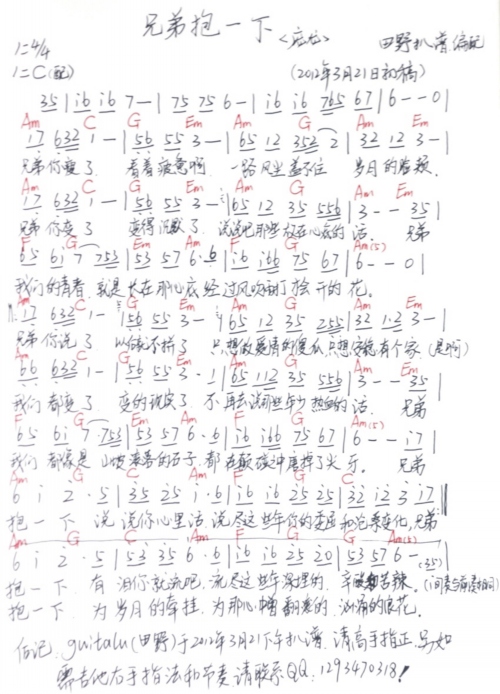 兄弟抱一下
1=4/4
<庞龙> 田野扒谱编配
1=C(配)
(2012年3月21日初稿)
35 | i6 i6 7 — | 75 75 6 — | i6 i6 765 67 | 6 — — 0 |
Am C G Em Am G Am Em
17 632 1 — | 56 55 3 — | 65 12 352 2 | 32 12 3 — |
兄弟你变了 看着疲惫啊 一路风尘盖不住 岁月的脸颊
Am C G Em Am G Am Em
17 632 1 — | 56 55 3 — | 65 12 35 556 | 3 — — 35 |
兄弟你变了 变得沉默了 说说吧那些放在心底的话 兄弟
F G Em Am F G Am(5)
65 61 7 753 | 53 57 6 · 6 | i6 i66 75 67 | 6 — — 0 |
我们的青春 就是长在那心底 经过风吹雨打才会开的花
Am C G Em Am G Am Em
17 632 1 — | 56 55 3 — | 65 12 35 255 | 32 12 3 — |
兄弟你说了 以后就不拼了 只想做爱情的傻瓜 只想安稳有个家 (是啊)
Am C G Em Am G Em
66 632 1 — | 35 55 3 · 1 | 65 12 35 556 | 3 — — 35 |
我们都变了 变的现实了 不再去说那些年少热血的话 兄弟
F G Em Am F G Am(5)
65 61 7 753 | 53 57 6 · 6 | i6 i66 75 67 | 6 — — i7 |
我们都像是山坡滚落的石子 都在颠破中磨掉了尖牙 兄弟
Am G C F G C
6 i 2 · 5 | 35 25 i · 6 | i6 i6 25 25 | 32 i2 3 i7 |
抱一下 说说你心里话 说尽这些年你的委屈和沧桑变化 兄弟
Am G C F G Am
6 i 2 · 5 | 53 35 6 · 6 | i6 i6 25 20 | 53 57 6 — (35) |
抱一下 有泪你就流吧 流尽这些年深埋的 辛酸和苦辣 (间奏与前奏相同)
抱一下 为岁月的牵挂 为那心中翻滚的 汹涌的浪花
后记: guitalu(田野)于2012年3月21下午扒谱 请高手指正 另如
需吉他右手指法和节奏请联系QQ:1293470318!